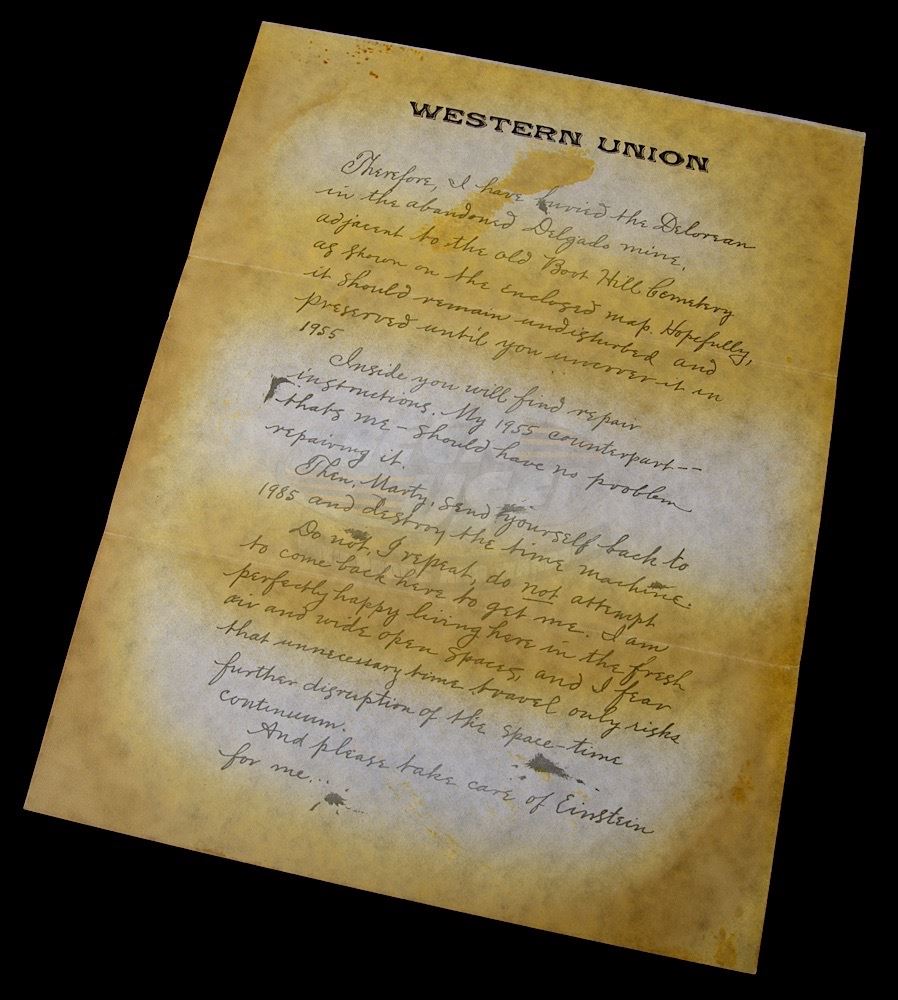 WESTERN UNION
Therefore, I have buried the Delorean
in the abandoned Delgado mine,
adjacent to the old Boot Hill Cemetery
as shown on the enclosed map. Hopefully,
it should remain undisturbed and
preserved until you uncover it in
1955
Inside you will find repair
instructions. My 1955 counterpart--
thats me - should have no problem
repairing it.
Then, Marty, send yourself back to
1985 and destroy the time machine.
Do not, I repeat, do not attempt
to come back here to get me. I am
perfectly happy living here in the fresh
air and wide open spaces, and I fear
that unnecessary time travel only risks
further disruption of the space-time
continuum.
And please take care of Einstein
for me...